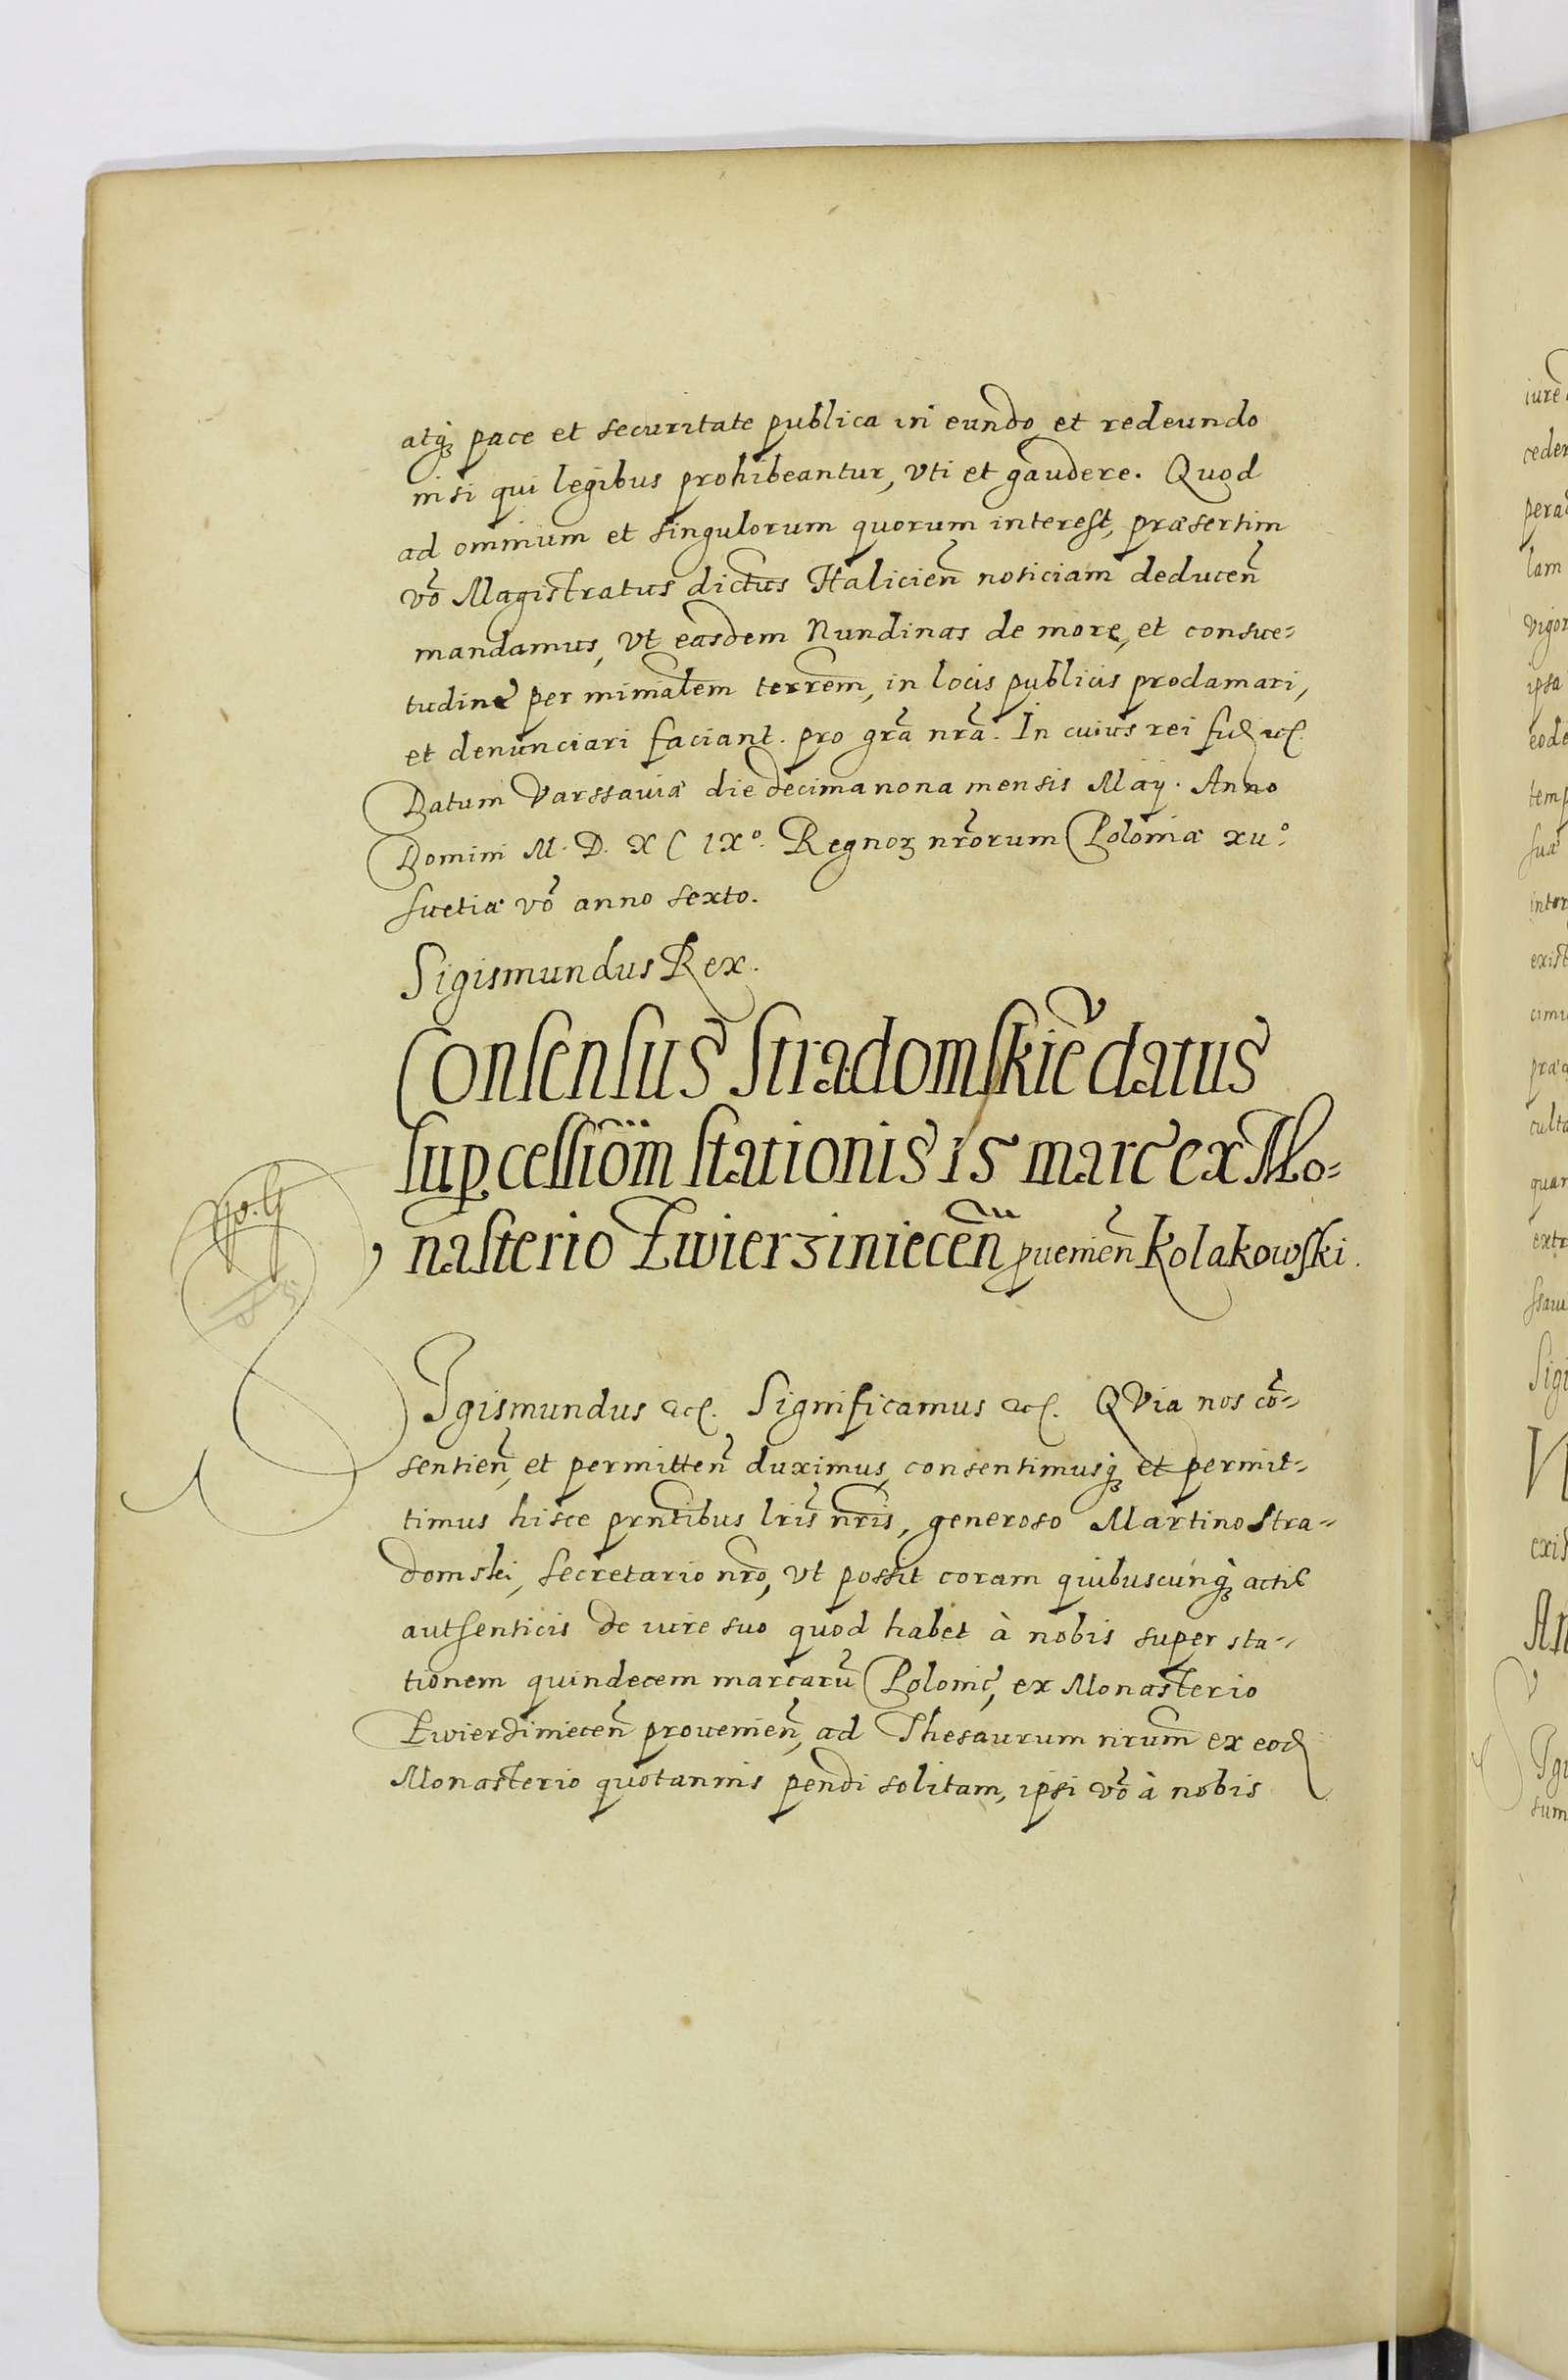 atq₃ pace et securitate publica in eundo et redeundo
nisi qui legibus prohibeantur, vti et gaudere. Quod
ad omnium et singulorum quorum interest, præsertim
vō Magistratus dictus Haliciēn noticiam deducēn
mandamus, Vt easdem Nundinas de more, et consue=
tudine per minīalem terrēm, in locis publicis proclamari,
et denunciari faciant. pro grā nrā. In cuius rei fid &c.
Datum Varssauiæ die decima nona mensis Maÿ. Anno
Domini M. D. XC IXº. Regnoꝝ nrōrum Poloniæ xvº.
Suetiæ vō anno sexto.
Sigismundus Rex.
Consensus Stradomskiē datus
sup cessiōm stationis 15 marc ex Mo=
nasterio Zwierziniecēn puenien Kolakowski.
Sigismundus &c. Significamus &c. QVia nos cō=
sentiēn, et permittēn duximus, consentimusq₃ et permit=
timus hisce prntibus lris nris, generoso Martino Stra=
domski, Secretario nrō, vt possit coram quibuscunq₃ actis
autsenticis de iure suo quod habet à nobis super sta=
tionem quindecem marcarū Polonic, ex Monasterio
Zwierziniecēn prouenien, ad Thesaurum nrum ex eod
Monasterio quotannis pendi solitam, ipsi vō à nobis